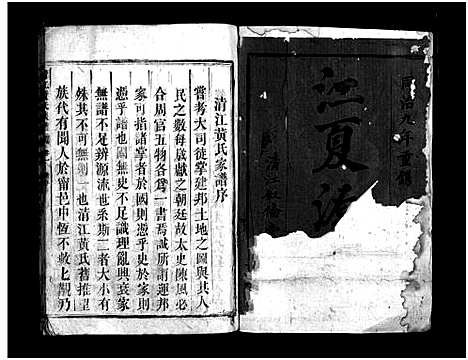 同治九年重鐫
江夏
清江黃氏家譜序
嘗考大司徒掌建邦土地之圖與其人
民之數每歲獻之朝廷故太史陳風必
合周官五物各為一書焉誠所謂運邦
家可指諸掌者於國則憑乎史於家則
憑乎譜也國無史不足識理亂興衰家
無譜不足辨源流世系斯二者大小有
殊其不可無則一也清江黃氏舊推望
族代有聞人於甯邑中恆不敢上觀乃